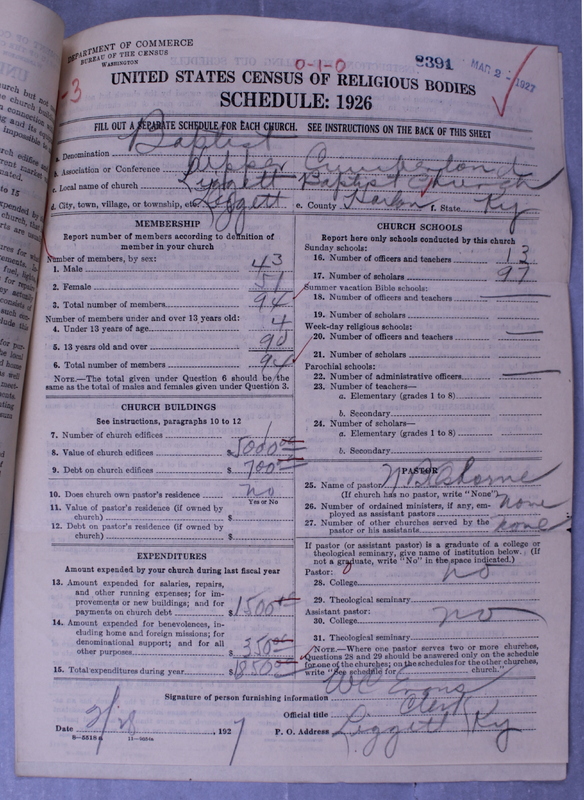 DEPARTMENT OF COMMERCE
BUREAU OF THE CENSUS
WASHINGTON
0-1-0
8391
MAR 2 - 1927
-3
UNITED STATES CENSUS OF RELIGIOUS BODIES
SCHEDULE: 1926
FILL OUT A SEPARATE SCHEDULE FOR EACH CHURCH. SEE INSTRUCTIONS ON THE BACK OF THIS SHEET
a. Denomination Baptist
b. Association or Conference Upper Cumberland
c. Local name of church Liggett Baptist Church
d. City, town, village, or township, etc. Liggett e. County Harlan f. State Ky
MEMBERSHIP
Report number of members according to definition of
member in your church
Number of members, by sex:
1. Male 43
2. Female 51
3. Total number of members 94
Number of members under and over 13 years old:
4. Under 13 years of age 4
5. 13 years old and over 90
6. Total number of members 94
NOTE.—The total given under Question 6 should be the
same as the total of males and females given under Question 3.
CHURCH BUILDINGS
See instructions, paragraphs 10 to 12
7. Number of church edifices 1
8. Value of church edifices $ 5000 00
9. Debt on church edifices $ 700 00
10. Does church own pastor's residence no
Yes or No
11. Value of pastor's residence (if owned by
church) $
12. Debt on pastor's residence (if owned by
church) $
EXPENDITURES
Amount expended by your church during last fiscal year
13. Amount expended for salaries, repairs,
and other running expenses; for im-
provements or new buildings; and for
payments on church debt $ 1500 00
14. Amount expended for benevolences, in-
cluding home and foreign missions; for
denominational support; and for all
other purposes $ 350 00
15. Total expenditures during year $ 1850 00
CHURCH SCHOOLS
Report here only schools conducted by this church
Sunday schools:
16. Number of officers and teachers 13
17. Number of scholars 97
Summer vacation Bible schools:
18. Number of officers and teachers
19. Number of scholars
Week-day religious schools:
20. Number of officers and teachers
21. Number of scholars
Parochial schools:
22. Number of administrative officers
23. Number of teachers—
a. Elementary (grades 1 to 8)
b. Secondary
24. Number of scholars—
a. Elementary (grades 1 to 8)
b. Secondary
PASTOR
25. Name of pastor
(If church has no pastor, write "None")
26. Number of ordained ministers, if any, em-
ployed as assistant pastors none
27. Number of other churches served by the
pastor or his assistants none
If pastor (or assistant pastor) is a graduate of a college or
theological seminary, give name of institution below. (If
not a graduate, write "No" in the space indicated.)
Pastor:
28. College no
29. Theological seminary
Assistant pastor:
30. College no
31. Theological seminary
NOTE.—Where one pastor serves two or more churches,
Questions 28 and 29 should be answered only on the schedule
for one of the churches; on the schedules for the other churches,
write "See schedule for church."
Signature of person furnishing information W C Evans
Official title Clerk
Date 2/28, 1927 P. O. Address Liggett Ky
8-5518a